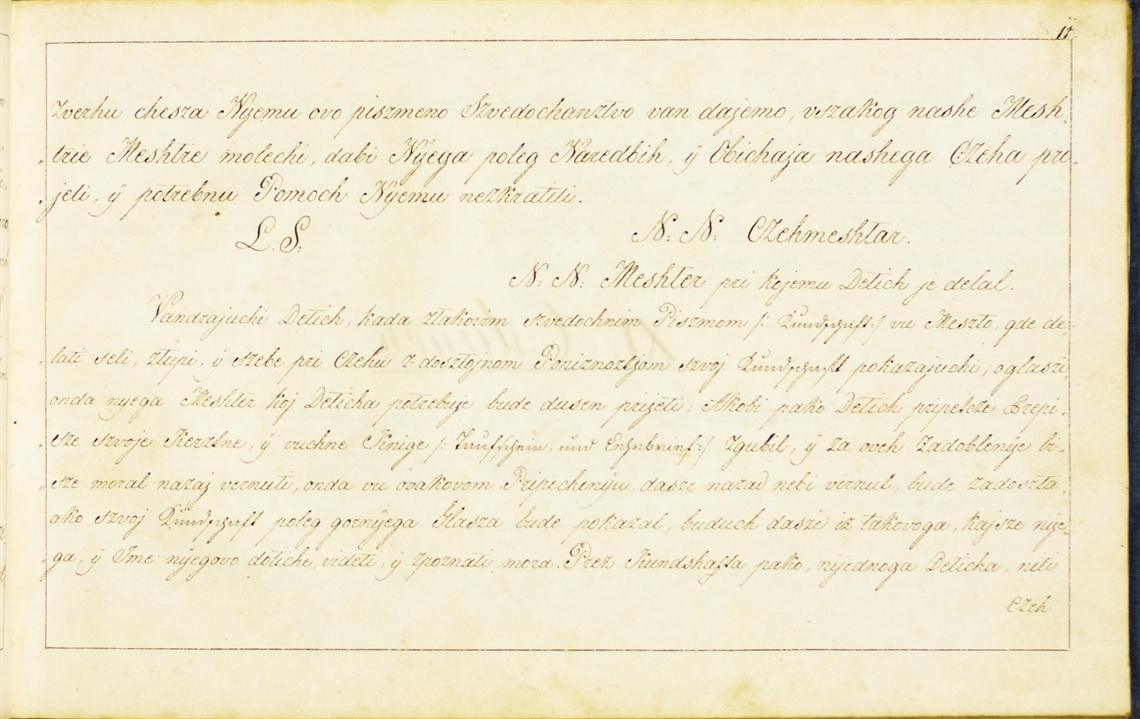 11.
zverhu chesza Nyemu ovo piszmeno Szvedochanztvo van dajemo, vszakog nashe Mesh,
trie Meshtre molechi, dabi Nyega poleg Naredbih, ÿ Obichaja nashega Czeha pri,
jeli, ÿ potrebnu Pomoch Nyemu nezkratili.
L. S:
N: N: Czehmeshtar.
N: N: Meshter pri kojemu Detich je delal.
Vandrajuchi Detich, kada ztakovim szvedochnim Piszmom /: Kundschaft :/ vu Meszto, gde de,
lati seli, ztupi, ÿ szebe pri Czehu z dosztojnom Poniznosztjom szvoj Kundschaft pokazajuchi, oglaszi,
onda nyega Meshter koj Deticha potrebuje bude dusen prijeti; Akobi pako Detich pripetsze Prepi,
sze szvoje Kerztne, ÿ vuchne Knige /: Taufschein, und Lehrbrief :/ zgubil, ÿ za oveh zadoblenye bi,
sze moral nazaj vernuti, onda vu ovakovom Pripechenyu, dasze nazad nebi vernul, bude zadoszta,
ako szvoj Kundschaft poleg gornyega Glasza bude pokazal, buduch dasze iz takovoga, kajsze nye,
ga, ÿ Ime nyegovo dotiche, videti, ÿ zpoznati mora. Prez Kundshafta pako, nijednoga Deticha, niti
Czeh